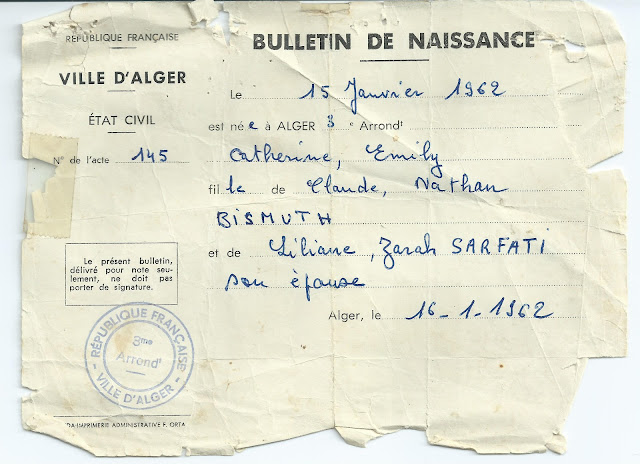 RÉPUBLIQUE FRANÇAISE
VILLE D'ALGER
ÉTAT CIVIL
N° de l'acte 145
Le présent bulletin,
délivré pour note seu-
lement, ne doit pas
porter de signature.
RÉPUBLIQUE FRANÇAISE
3me
Arrondt
VILLE D'ALGER
IMPRIMERIE ADMINISTRATIVE F. ORTA
BULLETIN DE NAISSANCE
Le 15 Janvier 1962
est née à ALGER 3e Arrondt
Catherine, Emily
fille de Claude, Nathan
BISMUTH
et de Liliane, Zarah SARFATI
son épouse
Alger, le 16-1-1962